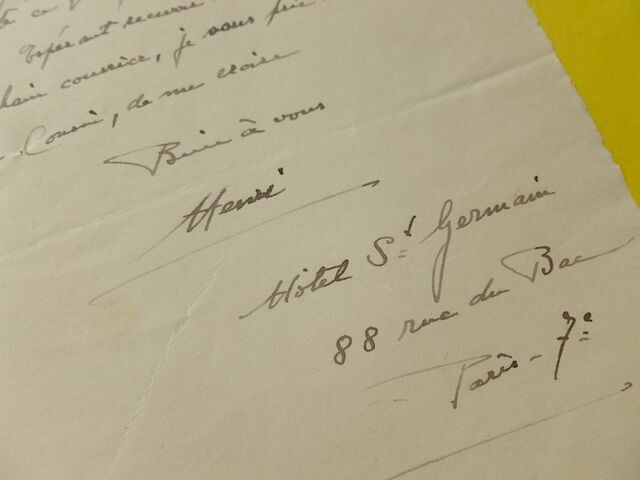 Espérant recevoir
chain courrier, je vous prie
Cousin, de me croire
Bien à vous
Henri
Hôtel St Germain
88 rue du Bac
Paris - 7e